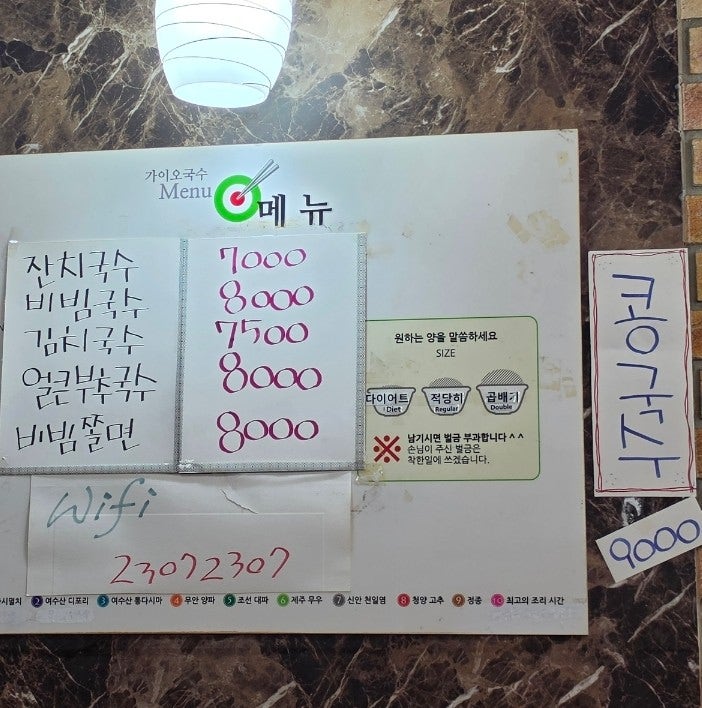 가이오국수
Menu
메뉴
잔치국수 7000
비빔국수 8000
김치국수 7500
얼큰부추국수 8000
비빔쫄면 8000
원하는 양을 말씀하세요
SIZE
다이어트 적당히 곱빼기
Diet Regular Double
※ 남기시면 벌금 부과합니다 ^ ^
손님이 주신 벌금은
착한일에 쓰겠습니다.
콩국수
9000
Wifi
23072307
2 여수산 디포리 3 여수산 통다시마 4 무안 양파 5 조선 대파 6 제주 무우 7 신안 천일염 8 청양 고추 9 정종 10 최고의 조리 시간